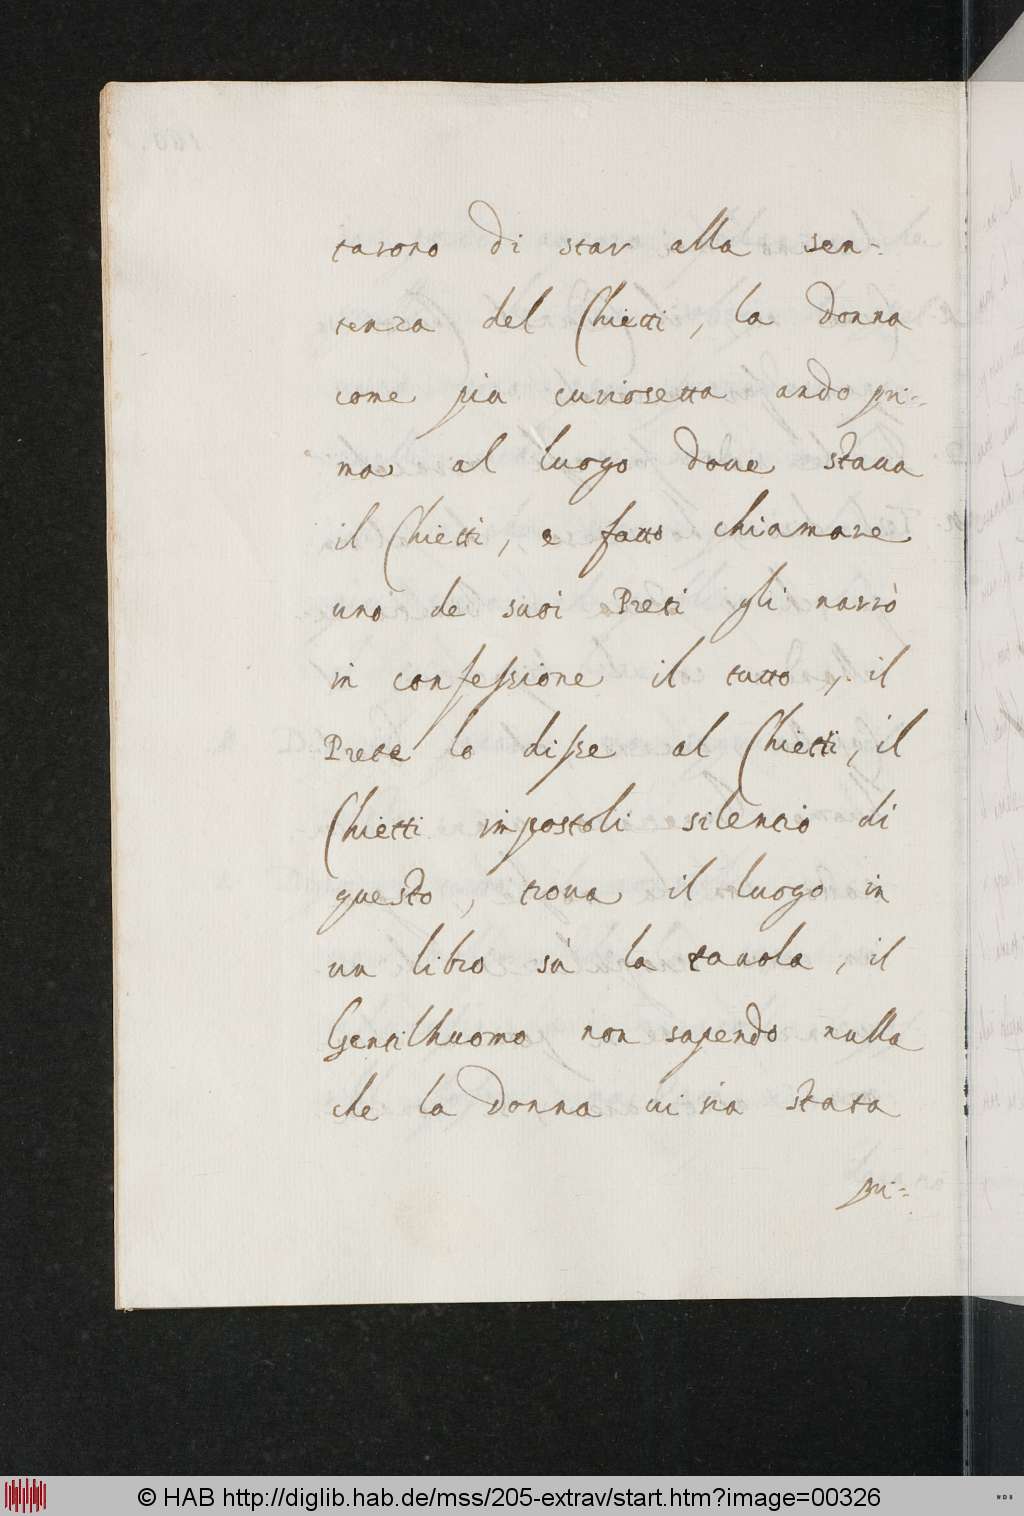 tarono di star alla sen-
tenza del Chietti, la donna
come piu curiosetta ando pri-
ma al luogo doue staua
il Chietti, e fatto chiamare
uno de suoi Preti gli narrò
in confessione il tutto, il
Prete lo disse al Chietti, il
Chietti impostoli silentio di
questo, troua il luogo in
un libro sù la tauola, il
Gentilhuomo non sapendo nulla
che la donna ui sia stata
pri-
© HAB http://diglib.hab.de/mss/205-extrav/start.htm?image=00326